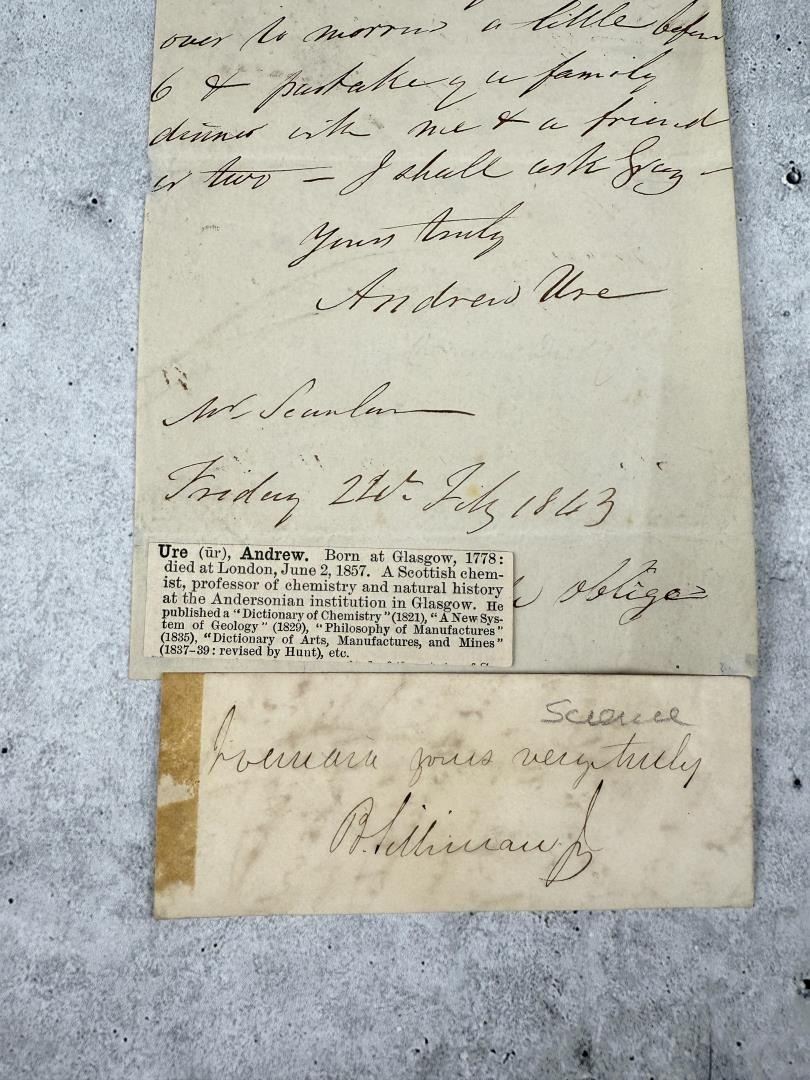 over to morrow a little before
6 & partake of a family
dinner with me & a friend
or two – I shall ask Gray –
Yours truly
Andrew Ure
Mr Scanlan
Friday Feby 1843
oblige
Ure (ūr), Andrew. Born at Glasgow, 1778:
died at London, June 2, 1857. A Scottish chem-
ist, professor of chemistry and natural history
at the Andersonian institution in Glasgow. He
published a "Dictionary of Chemistry" (1821), "A New Sys-
tem of Geology" (1829), "Philosophy of Manufactures"
(1835), "Dictionary of Arts, Manufactures, and Mines"
(1837–39: revised by Hunt), etc.
Science
I remain yours very truly
B. Silliman Jr